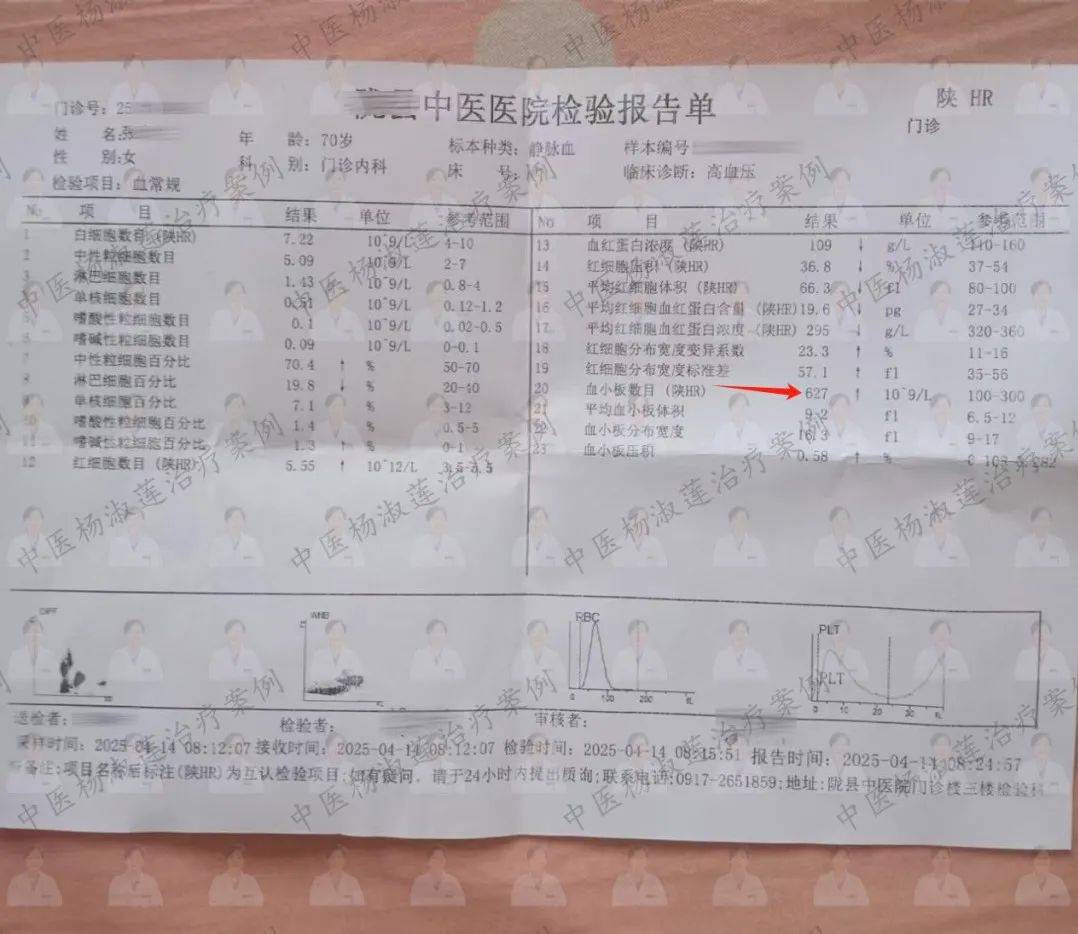 中医医院检验报告单
陕 HR
门诊号: 25
门诊
姓 名:张
年 龄: 70岁
标本种类: 静脉血
样本编号
性 别:女
科 别: 门诊内科
床 号:
临床诊断: 高血压
检验项目: 血常规
No 项 目 结果 单位 参考范围
1 白细胞数目 (陕HR) 7.22 10^9/L 4-10
2 中性粒细胞数目 5.09 10^9/L 2-7
3 淋巴细胞数目 1.43 10^9/L 0.8-4
单核细胞数目 0.51 10^9/L 0.12-1.2
5 嗜酸性粒细胞数目 0.1 10^9/L 0.02-0.5
6 嗜碱性粒细胞数目 0.09 10^9/L 0-0.1
7 中性粒细胞百分比 70.4 ↑ % 50-70
8 淋巴细胞百分比 19.8 ↓ % 20-40
9 单核细胞百分比 7.1 % 3-12
10 嗜酸性粒细胞百分比 1.4 % 0.5-5
11 嗜碱性粒细胞百分比 1.3 ↑ % 0-1
12 红细胞数目 (陕HR) 5.55 ↑ 10^12/L 3.5-5.5
No 项 目 结果 单位 参考范围
13 血红蛋白浓度 (陕HR) 109 ↓ g/L 110-160
14 红细胞压积 (陕HR) 36.8 ↓ % 37-54
15 平均红细胞体积 (陕HR) 66.3 ↓ fl 80-100
16 平均红细胞血红蛋白含量 (陕HR) 19.6 ↓ pg 27-34
17 平均红细胞血红蛋白浓度 (陕HR) 295 ↓ g/L 320-360
18 红细胞分布宽度变异系数 23.3 ↑ % 11-16
19 红细胞分布宽度标准差 57.1 ↑ fl 35-56
20 血小板数目 (陕HR) 627 ↑ 10^9/L 100-300
21 平均血小板体积 9.2 fl 6.5-12
22 血小板分布宽度 16.3 fl 9-17
23 血小板压积 0.58 ↑ %
DIFF
WNB
RBC
0 100 200 fL
PLT
PLT
0 10 20 30 fL
送检者:
检验者:
审核者:
采样时间: 2025-04-14 08:12:07 接收时间: 2025-04-14 08:12:07 检验时间: 2025-04-14 08:15:51 报告时间: 2025-04-14 08:24:57
备注:项目名称后标注(陕HR)为互认检验项目;如有疑问, 请于24小时内提出质询;联系电话:0917-2651859;地址:陇县中医院门诊楼三楼检验科
中医杨淑莲治疗案例